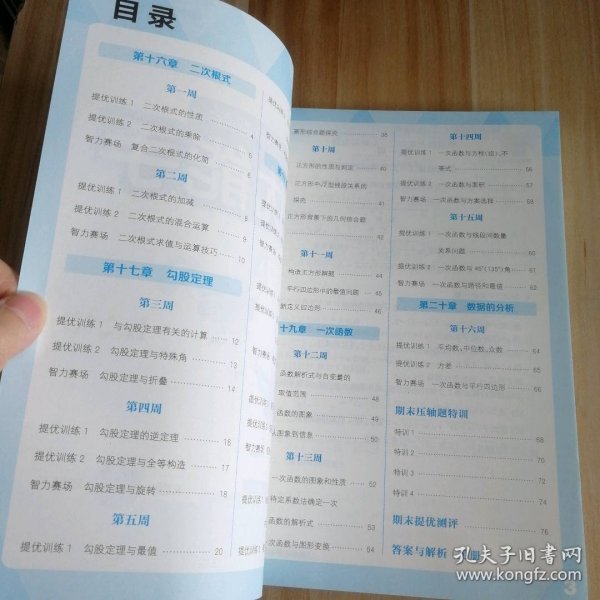 目录
第十六章 二次根式
第一周
提优训练1 二次根式的性质 4
提优训练2 二次根式的乘除 5
智力赛场 复合二次根式的化简 6
第二周
提优训练1 二次根式的加减 8
提优训练2 二次根式的混合运算 9
智力赛场 二次根式求值与运算技巧 10
第十七章 勾股定理
第三周
提优训练1 与勾股定理有关的计算 12
提优训练2 勾股定理与特殊角 13
智力赛场 勾股定理与折叠 14
第四周
提优训练1 勾股定理的逆定理 16
提优训练2 勾股定理与全等构造 17
智力赛场 勾股定理与旋转 18
第五周
提优训练1 勾股定理与最值 20
菱形综合题探究 38
第十周
正方形的性质与判定 40
探究 41
正方形背景下的几何综合题 42
第十一周
构造正方形解题 44
平行四边形中的最值问题 45
新定义四边形 46
十九章 一次函数
第十二周
函数解析式与自变量的
取值范围 48
函数的图象 49
从图象到信息 50
第十三周
一次函数的图象和性质 52
待定系数法确定一次
函数的解析式 53
次函数与图形变换 54
第十四周
提优训练1 一次函数与方程(组)、不
等式 56
提优训练2 一次函数与面积 57
智力赛场 一次函数与方案选择 58
第十五周
提优训练1 一次函数与线段间数量
关系问题 60
提优训练2 一次函数与45°(135°)角 61
智力赛场 一次函数与路径和最值 62
第二十章 数据的分析
第十六周
提优训练1 平均数、中位数、众数 64
提优训练2 方差 65
智力赛场 一次函数与平行四边形 66
期末压轴题特训
特训1 68
特训2 70
特训3 72
特训4 74
期末提优测评 76
答案与解析
孔夫子旧书网
www.kongfz.com
3